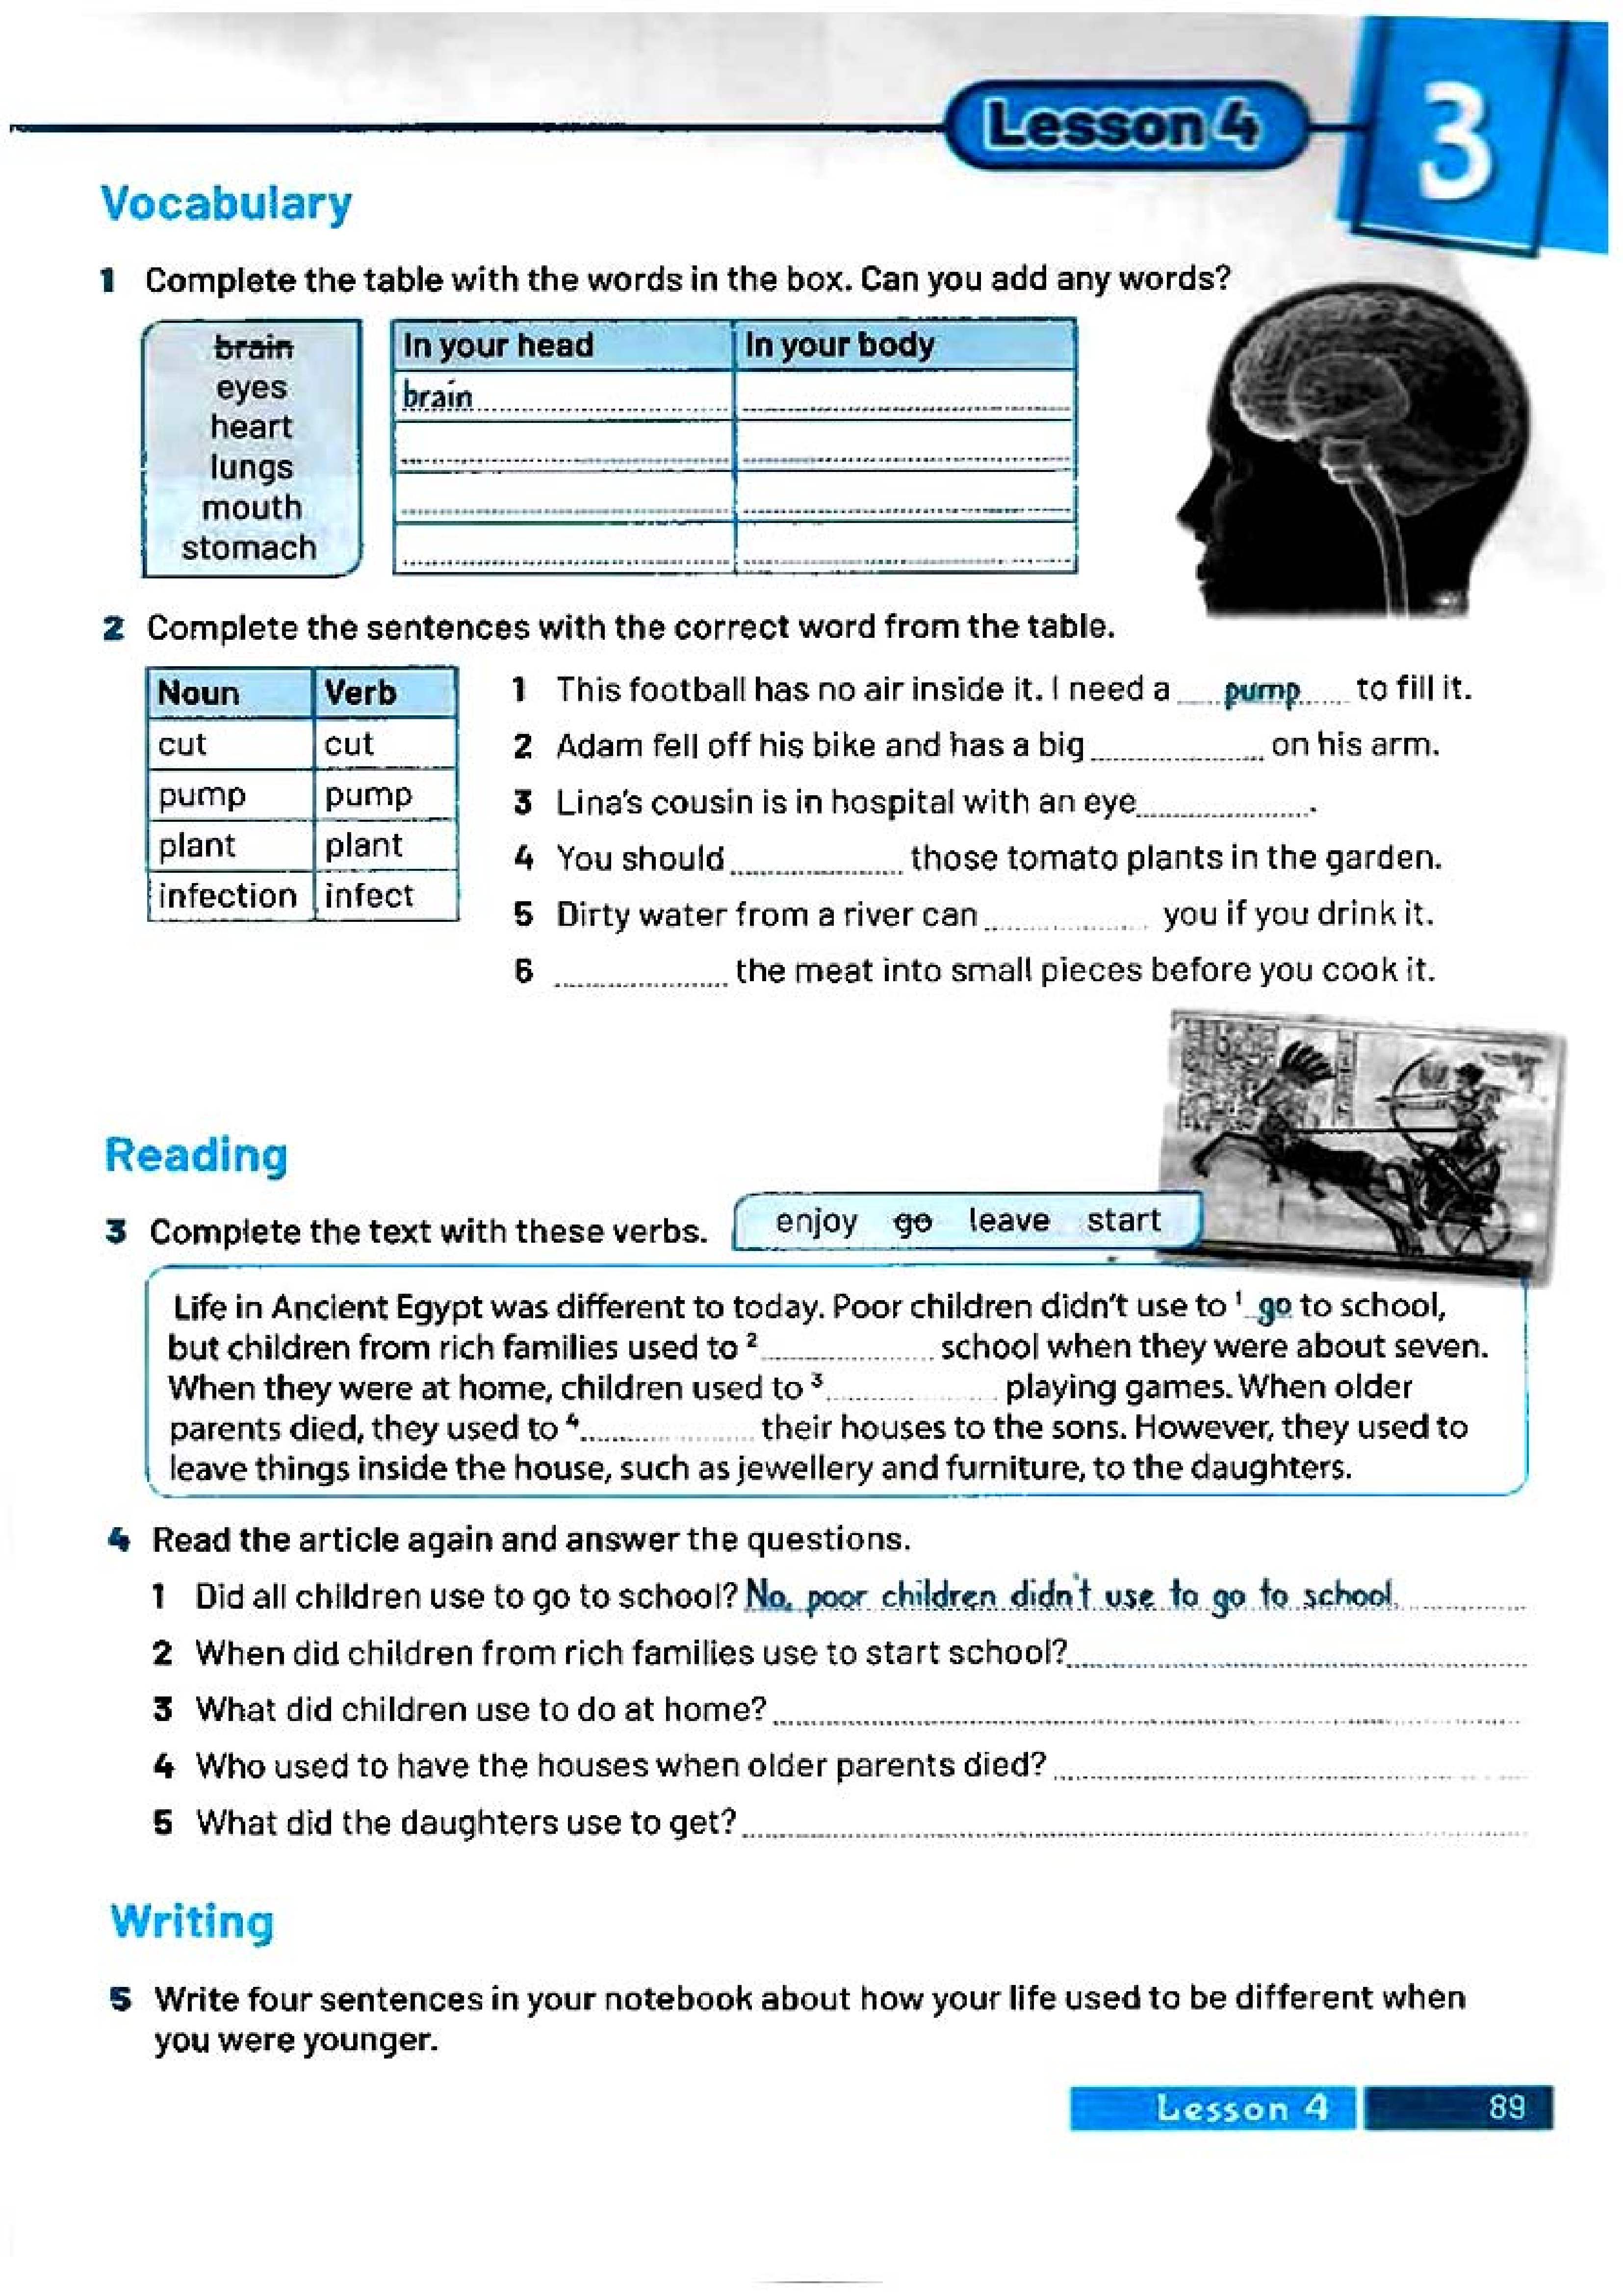 Lesson 4
3
Vocabulary
1 Complete the table with the words in the box. Can you add any words?
brain
eyes
heart
lungs
mouth
stomach
In your head In your body
brain
2 Complete the sentences with the correct word from the table.
Noun Verb
cut cut
pump pump
plant plant
infection infect
1 This football has no air inside it. I need a pump to fill it.
2 Adam fell off his bike and has a big on his arm.
3 Lina's cousin is in hospital with an eye .
4 You should those tomato plants in the garden.
5 Dirty water from a river can you if you drink it.
6 the meat into small pieces before you cook it.
Reading
3 Complete the text with these verbs.
enjoy go leave start
Life in Ancient Egypt was different to today. Poor children didn't use to 1 go to school,
but children from rich families used to 2 school when they were about seven.
When they were at home, children used to 3 playing games. When older
parents died, they used to 4 their houses to the sons. However, they used to
leave things inside the house, such as jewellery and furniture, to the daughters.
4 Read the article again and answer the questions.
1 Did all children use to go to school? No, poor children didn't use to go to school.
2 When did children from rich families use to start school?
3 What did children use to do at home?
4 Who used to have the houses when older parents died?
5 What did the daughters use to get?
Writing
5 Write four sentences in your notebook about how your life used to be different when
you were younger.
Lesson 4 89